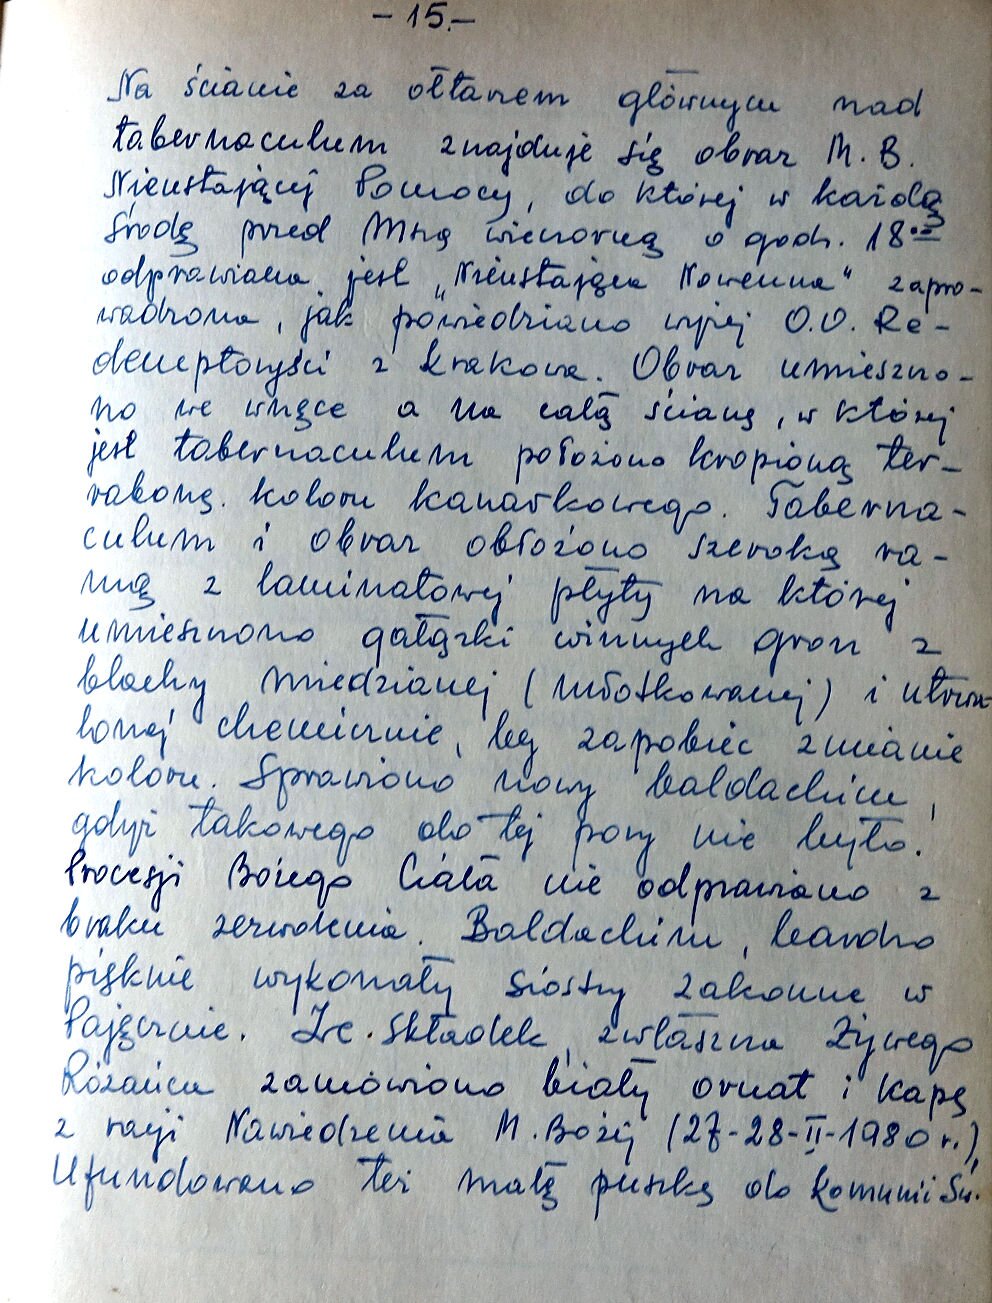 - 15.-
Na ścianie za ołtarzem głównym nad
tabernaculum znajduje się obraz M.B.
Nieustającej Pomocy, do której w każdą
środę przed Mszą wieczorną o godz. 18.00
odprawiana jest „Nieustająca Nowenna" zapro-
wadzona, jak powiedziano wyżej O.O. Re-
demptoryści z Krakowa. Obraz umieszczo-
no we wnęce a na całą ścianę, w której
jest tabernaculum położono kropioną ter-
rabonę koloru kanarkowego. Taberna-
culum i obraz obłożono szeroką ra-
mą z laminatowej płyty na której
umieszczono gałązki winnych gron z
blachy miedzianej (młotkowanej) i utrwa-
lonej chemicznie, by zapobiec zmianie
koloru. Sprawiono nowy baldachim,
gdyż takowego do tej pory nie było.
Procesji Bożego Ciała nie odprawiano z
braku zezwolenia. Baldachim, bardzo
pięknie wykonały siostry zakonne w
Pajęcznie. Ze składek, zwłaszcza Żywego
Różańca zamówiono biały ornat i kapę
z racji Nawiedzenia M. Bożej (27-28-II-1980 r.),
Ufundowano też małą puszkę do Komunii Św.